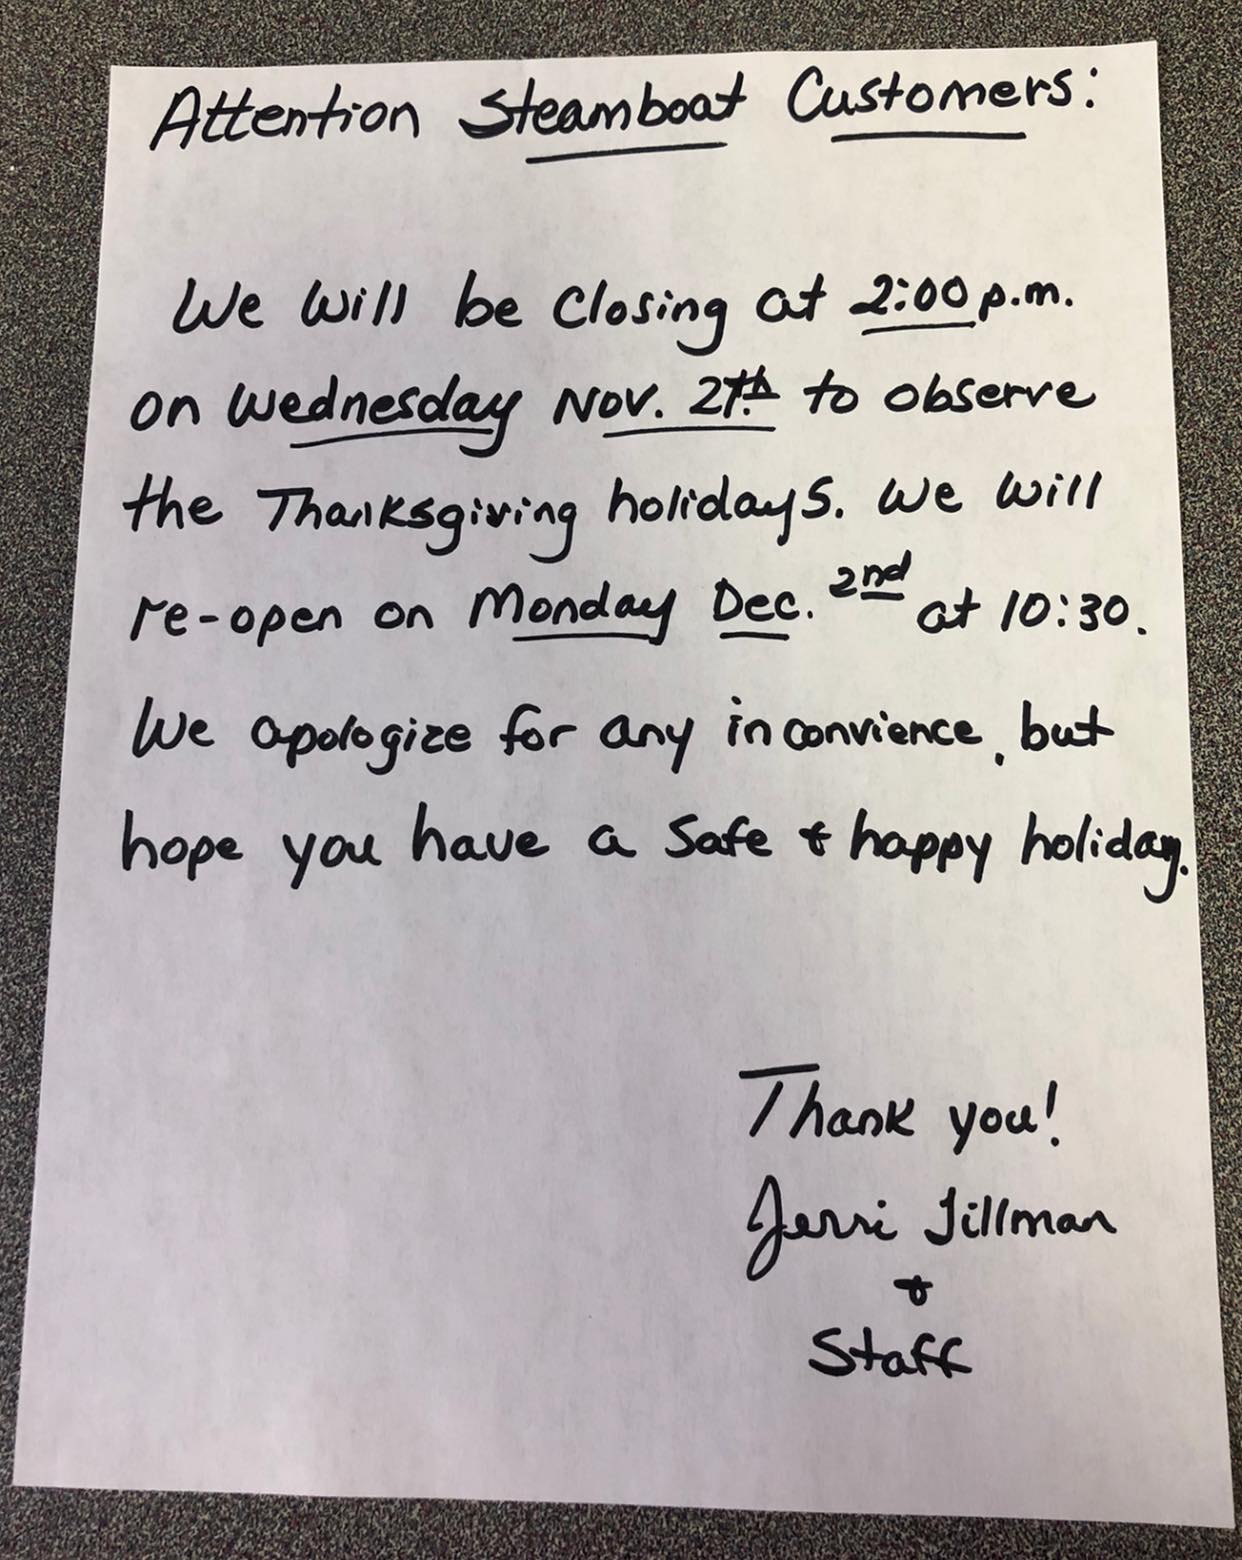 Attention Steamboat Customers:
We will be closing at 2:00 p.m.
on Wednesday Nov. 27th to observe
the Thanksgiving holidays. We will
re-open on Monday Dec. 2nd at 10:30.
We apologize for any inconvience, but
hope you have a safe & happy holiday.
Thank you!
Jerri Tillman
&
Staff